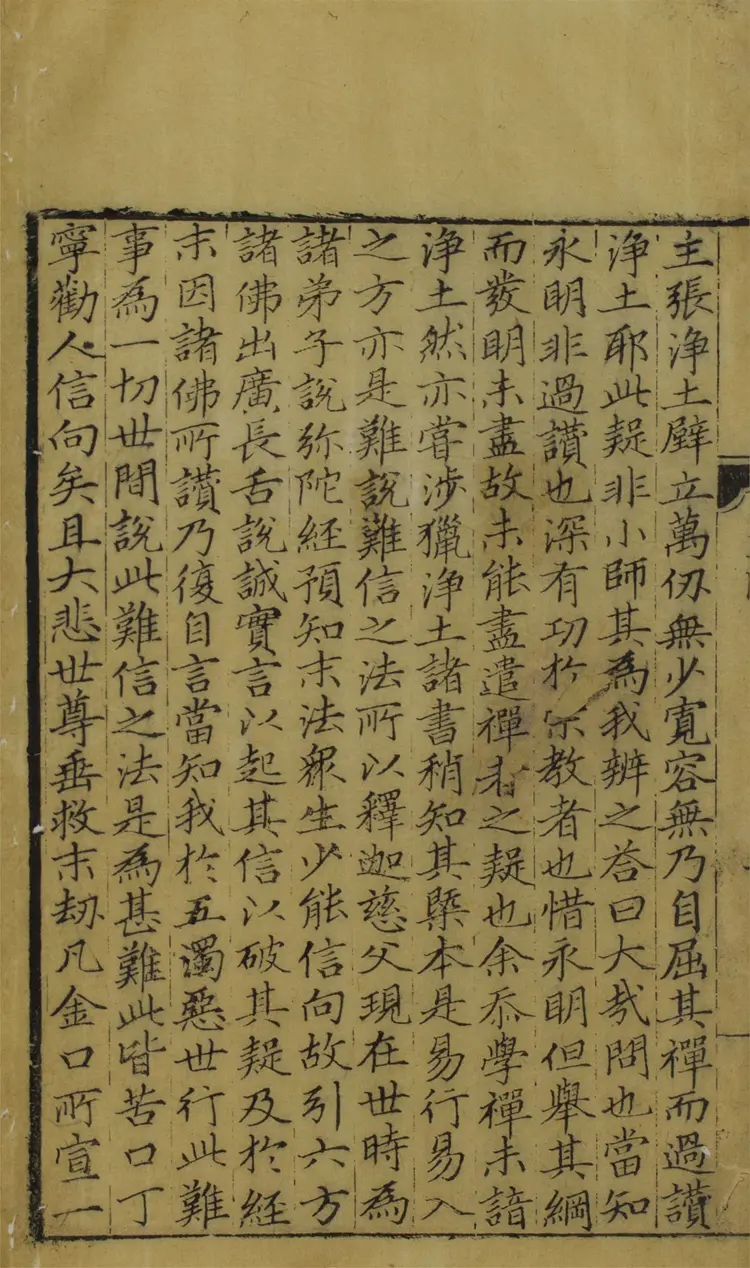 主張浄土壁立萬仭無少寛容無乃自屈其禪而過讃
浄土耶此疑非小師其為我辨之荅曰大㢤問也當知
永明非過讃也深有功於宗教者也惜永明但舉其綱
而發明未盡故未能盡遣禪者之疑也余忝學禪未諳
浄土然亦甞涉獵浄土諸書稍知其槩本是易行易入
之方亦是難說難信之法所以釋迦慈父現在世時為
諸弟子說弥陀經預知末法衆生少能信向故引六方
諸佛出廣長舌說誠實言以起其信以破其疑及於經
末因諸佛所讃乃復自言當知我於五濁惡世行此難
事為一切世間說此難信之法是為甚難此皆苦口丁
寧勸人信向矣且大悲世尊垂救末劫凡金口所宣一